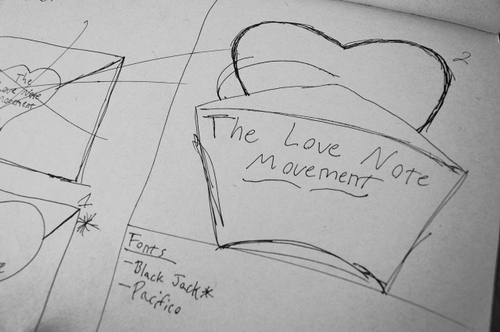 The
Love Note
Movement
1
*
2
The Love Note
Movement
Fonts
- Black Jack*
- Pacifico